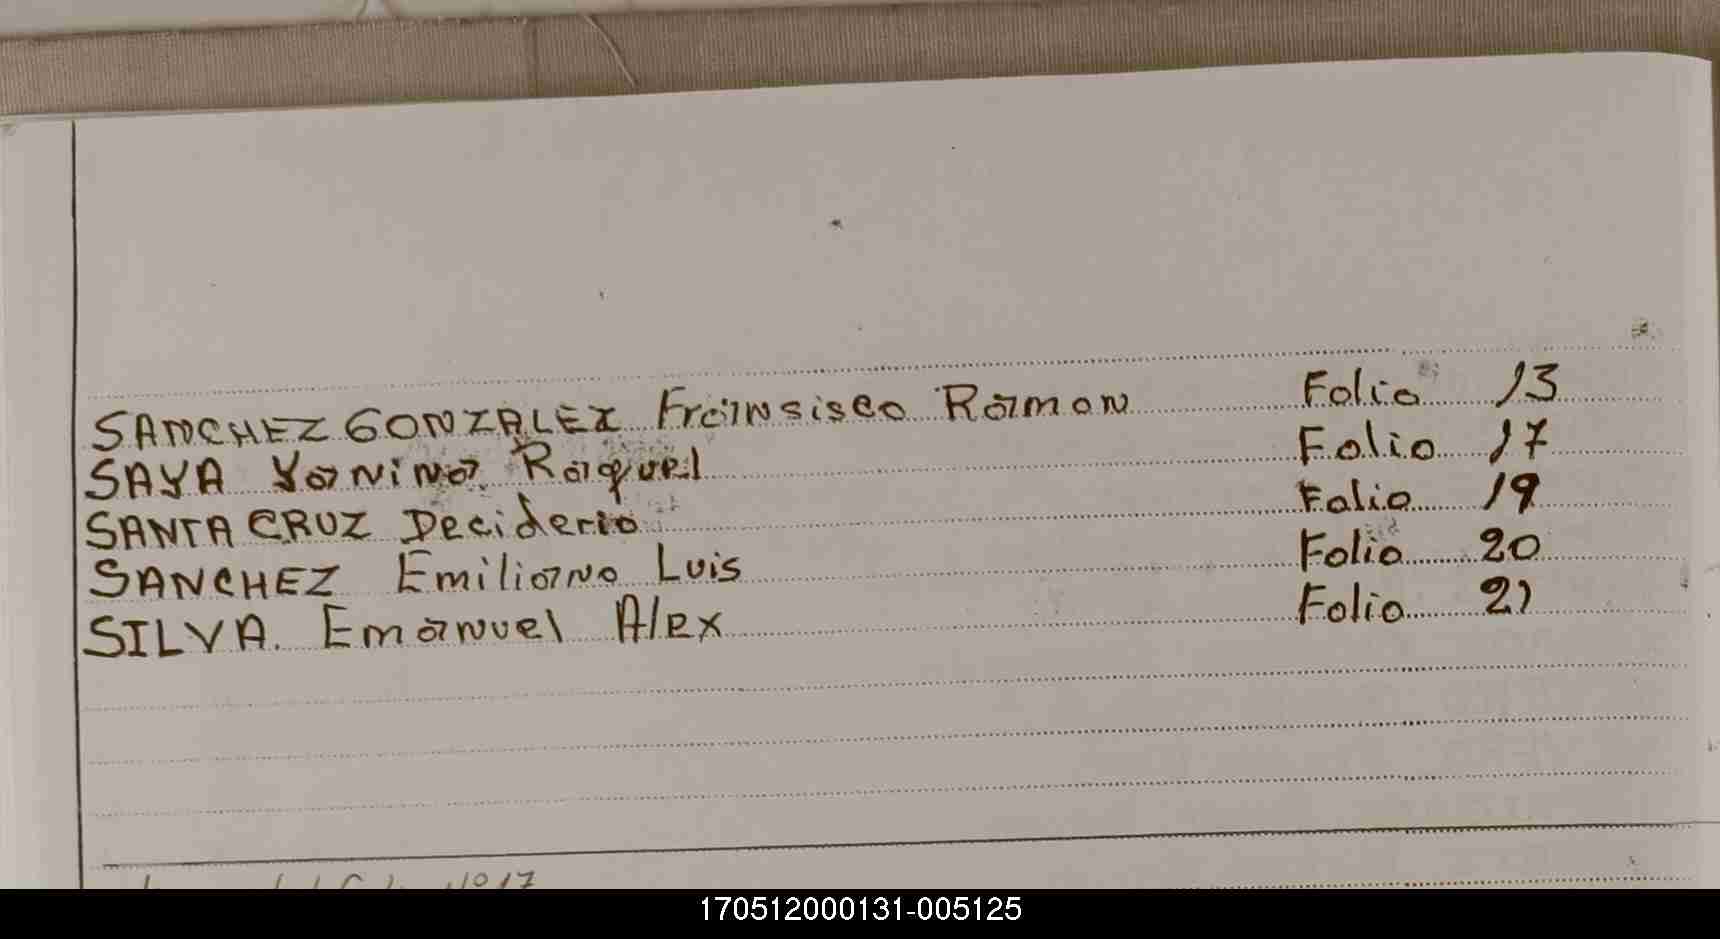 SANCHEZ GONZALEZ Fransisco Ramon Folio 13
SAYA Yanina Raquel Folio 17
SANTA CRUZ Deciderio Folio 19
SANCHEZ Emiliano Luis Folio 20
SILVA. Emanuel Alex Folio 21
Nº 17
170512000131-005125